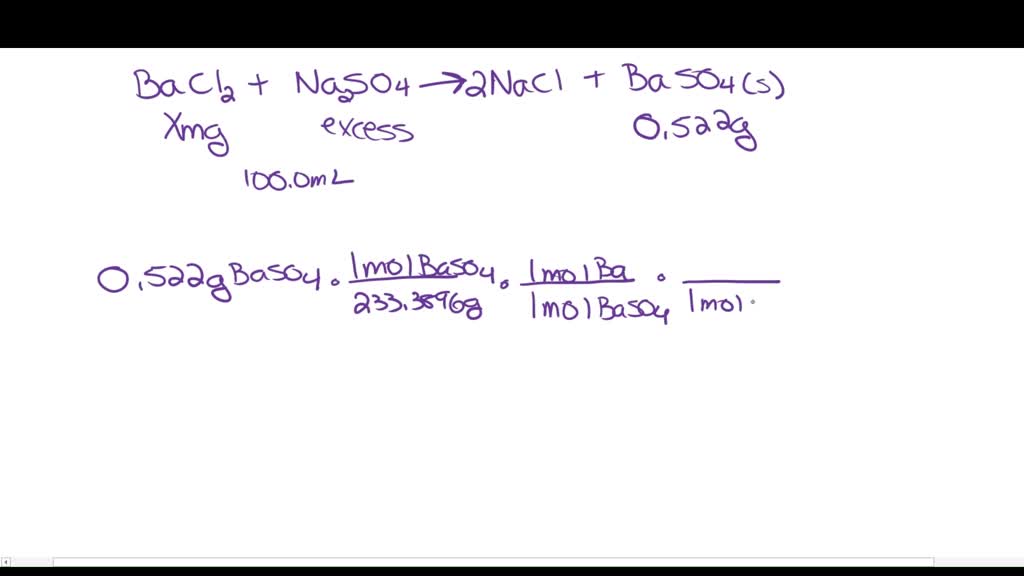 BaCl2 + Na2SO4 → 2NaCl + BaSO4(s)
Xmg excess 0.522g
100.0mL
0.522gBaSO4 · 1molBaSO4/233.3896g · 1molBa/1molBaSO4 · /1mol